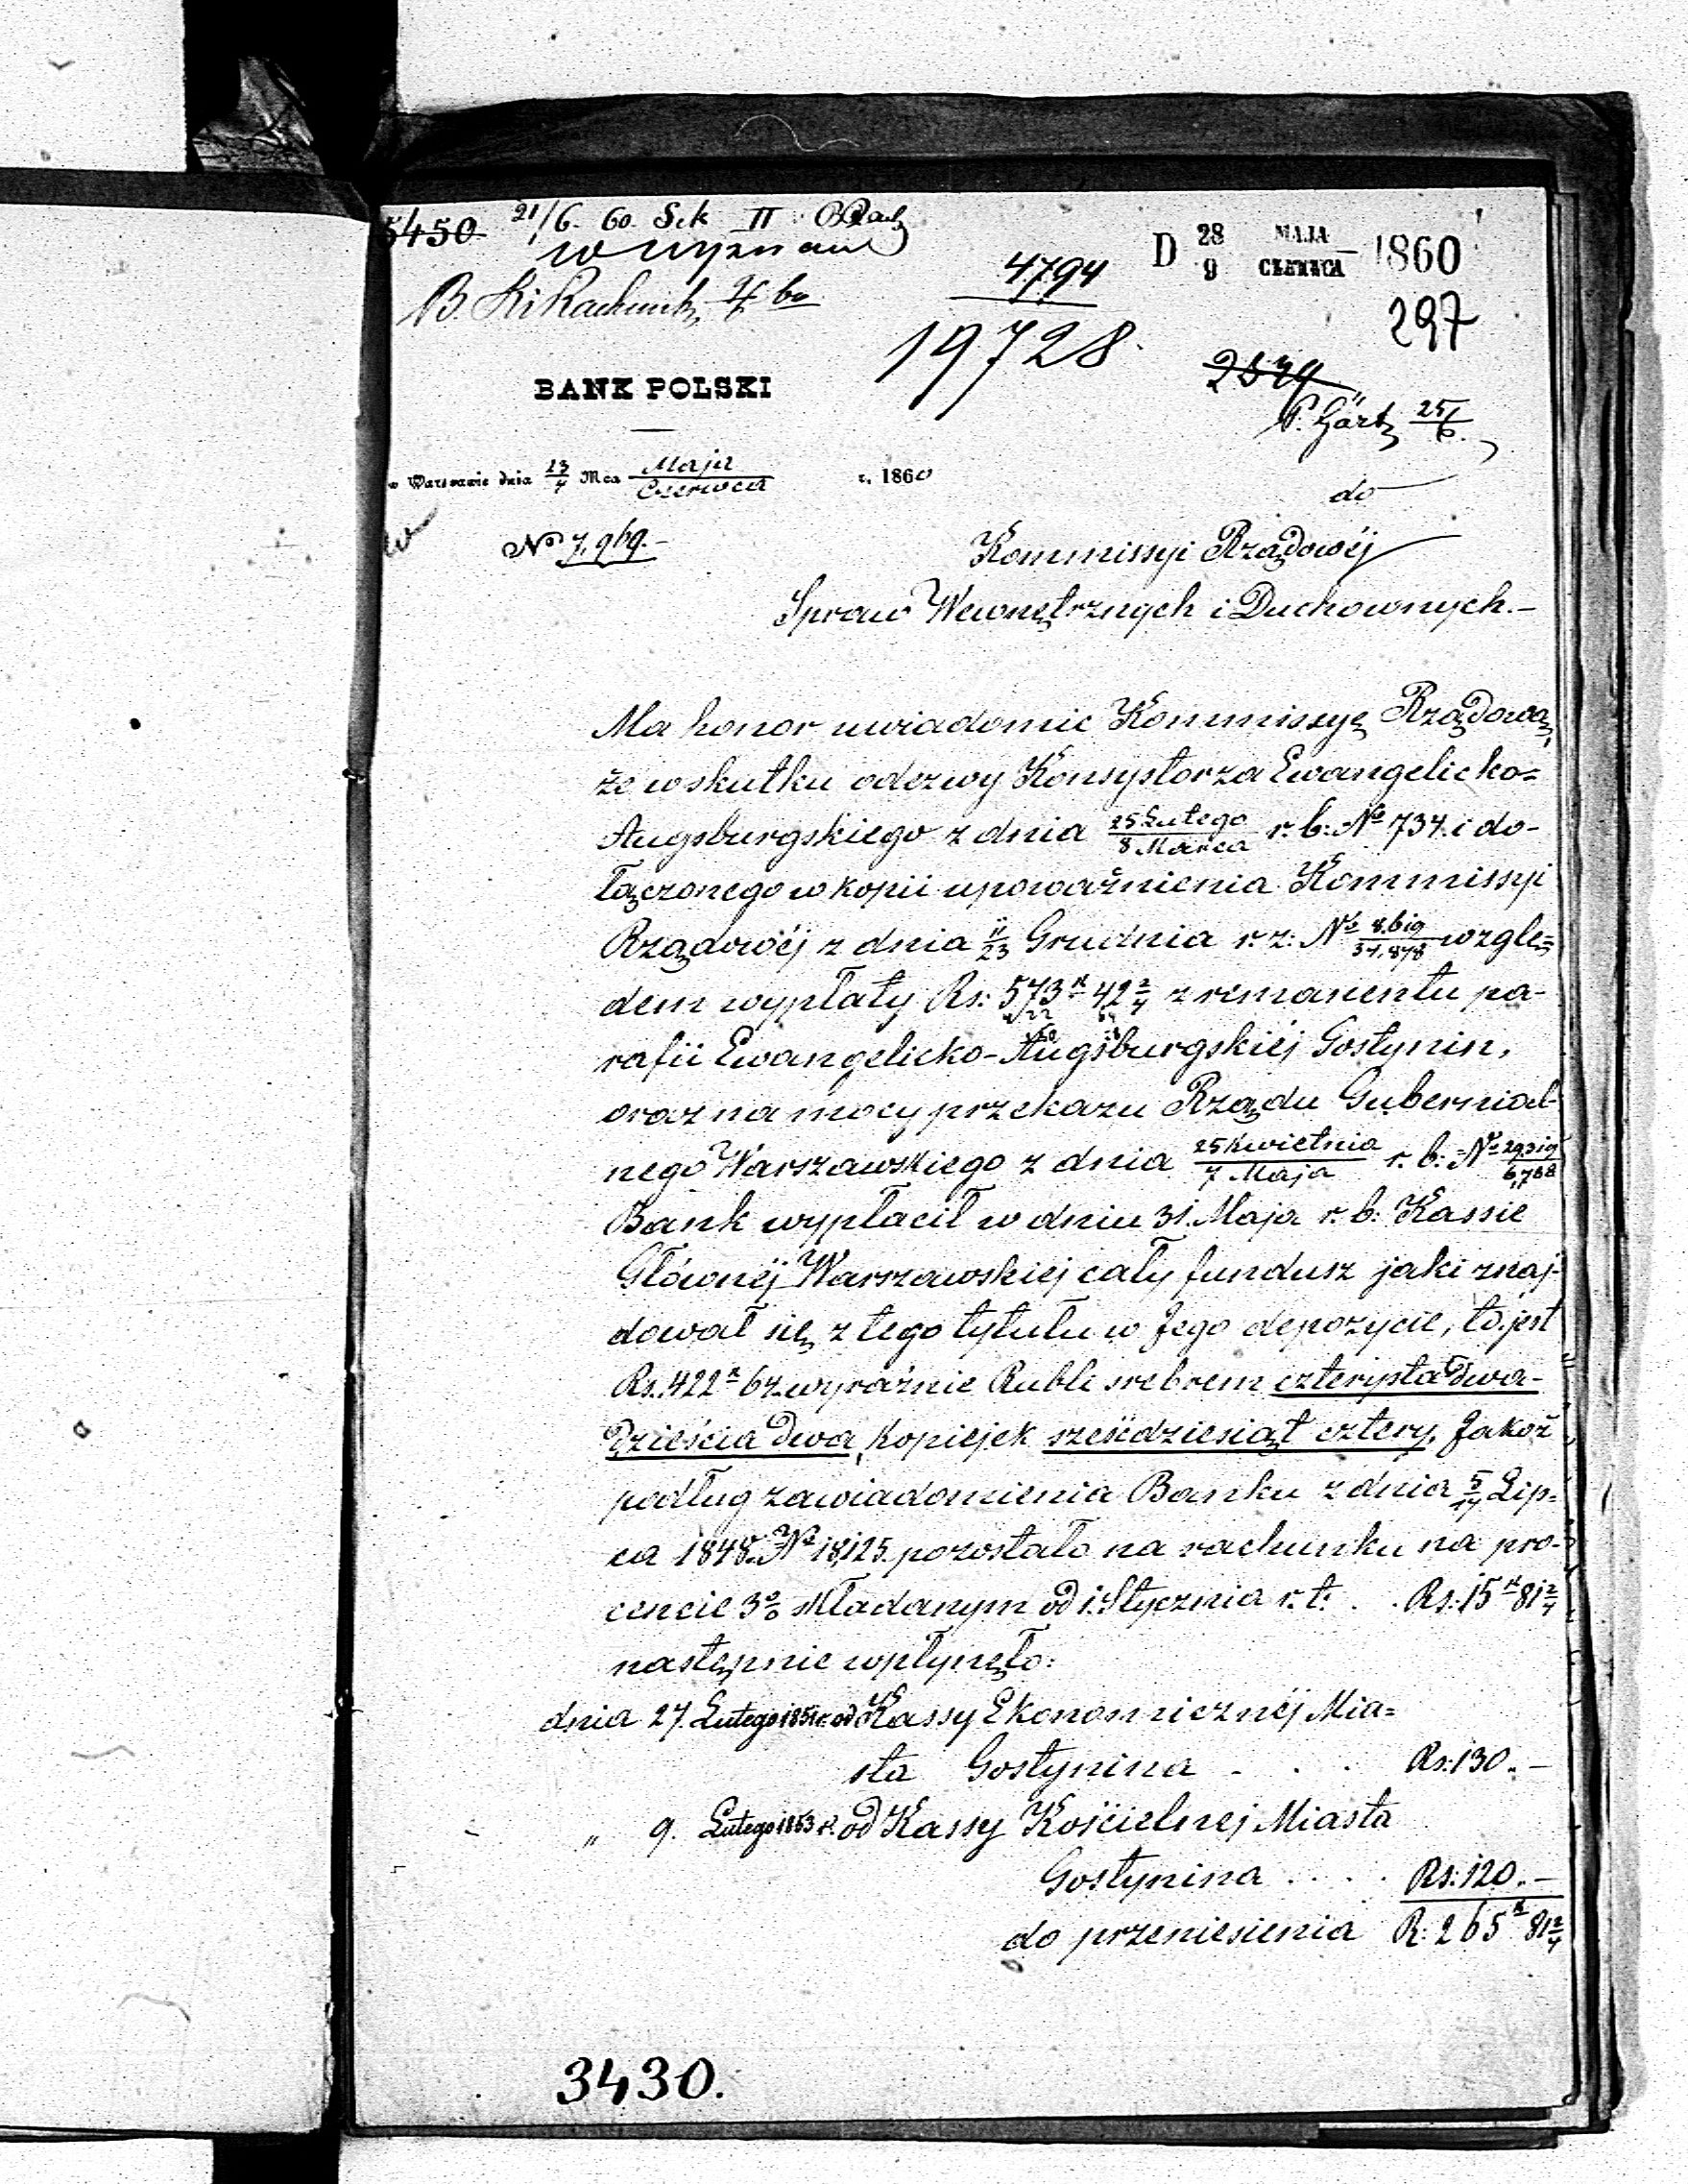 5450 21/6. 60. Sek II
D 28/9 MAJA/CZERWCA 1860
4794
297
19728.
BANK POLSKI
2529
P. Gärtz 25/6.
w Warszawie dnia 23/4 Mca Maja/Czerwca r. 1860
do
No 7,969.-
Kommissyi Rządowéj
Spraw Wewnętrznych i Duchownych.-
Ma honor uwiadomić Kommissyę Rządową,
że w skutku odezwy Konsystorza Ewangelicko=
Augsburgskiego z dnia 25 Lutego/8 Marca r. b: No 734. i do-
łączonego w kopii upoważnienia Kommissyi
Rządowéj z dnia 11/23 Grudnia r. z: No 8,619/37,878 wzglę=
dem wypłaty Rs: 573 k 42 2/4 z remanentu pa-
rafii Ewangelicko-Augsburgskiéj Gostynin,
oraz na mocy przekazu Rządu Gubernial-
nego Warszawskiego z dnia 25 Kwietnia/7 Maja r. b: No 29,319/6,768
Bank wypłacił w dniu 31. Maja r. b: Kassie
Głównéj Warszawskiej cały fundusz jaki znaj-
dował się z tego tytułu w Jego depozycie, to jest
Rs. 422 k 64. wyraźnie Rubli srebrem czterysta dwa-
dzieścia dwa, kopiejek sześćdziesiąt cztery. Jakoż
podług zawiadomienia Banku z dnia 5/17 Lip=
ca 1848. No 18,125. pozostało na rachunku na pro-
cencie 3 o/o składanym od 1. Stycznia r. t. . . Rs: 15 k 81 2/4
następnie wpłynęło:
dnia 27. Lutego 1851 r. od Kassy Ekonomicznéj Mia=
sta Gostynina . . . Rs: 130.-
" 9. Lutego 1853 r. od Kassy Kościelnej Miasta
Gostynina . . . . Rs: 120.-
do przeniesienia R: 265 k 81 2/4
3430.